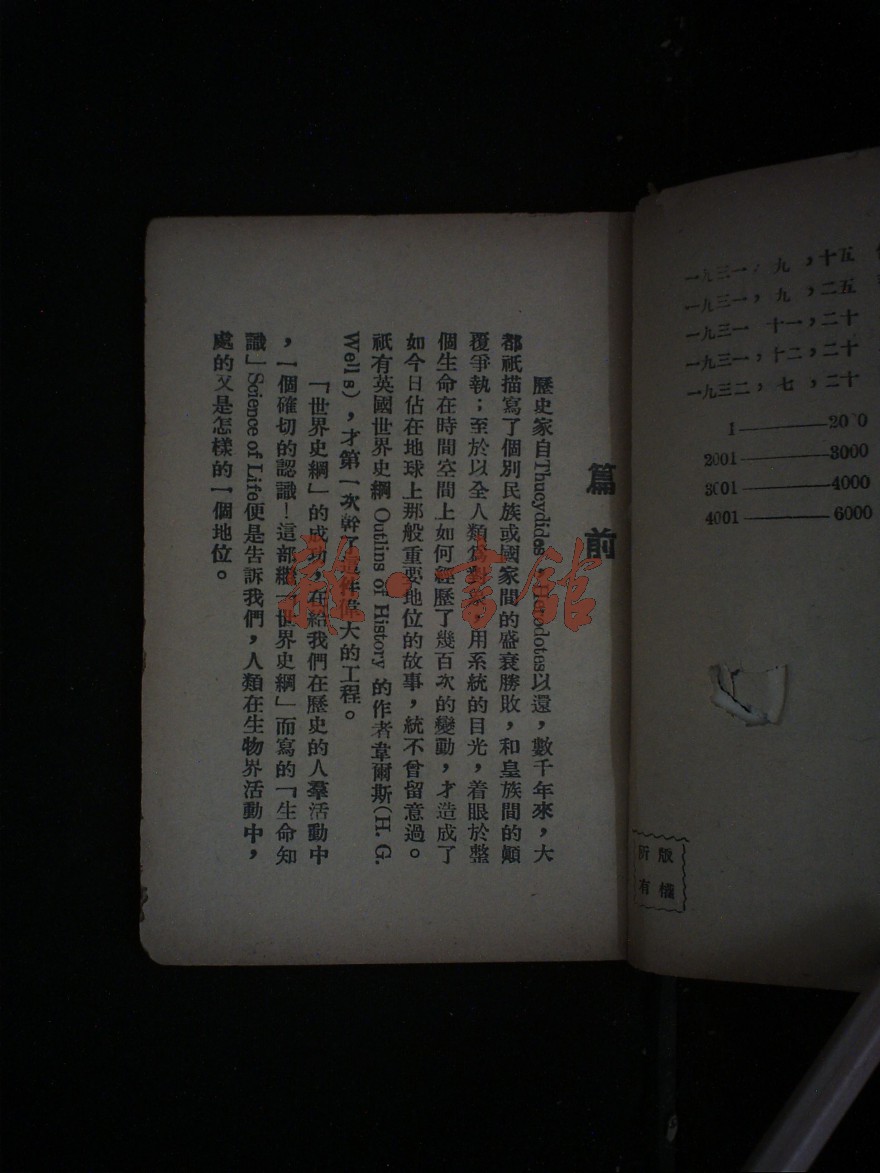 一九三一，九，十五
一九三一，九，二五
一九三一 十一，二十
一九三一，十二，二十
一九三二，七，二十
1———2000
2001———3000
3001———4000
4001———6000
版權
所有
篇前
歷史家自Thucydides，Herodotes以還，數千年來，大
都祇描寫了個別民族或國家間的盛衰勝敗，和皇族間的顚
覆爭執；至於以全人類爲對象，用系統的目光，着眼於整
個生命在時間空間上如何經歷了幾百次的變動，才造成了
如今日佔在地球上那般重要地位的故事，統不曾留意過。
祇有英國世界史綱 Outlins of History 的作者韋爾斯（H. G.
Wells），才第一次幹了這件偉大的工程。
「世界史綱」的成功，在給我們在歷史的人羣活動中
，一個確切的認識！這部繼「世界史綱」而寫的「生命知
識」Science of Life便是告訴我們，人類在生物界活動中，
處的又是怎樣的一個地位。
雜·書館